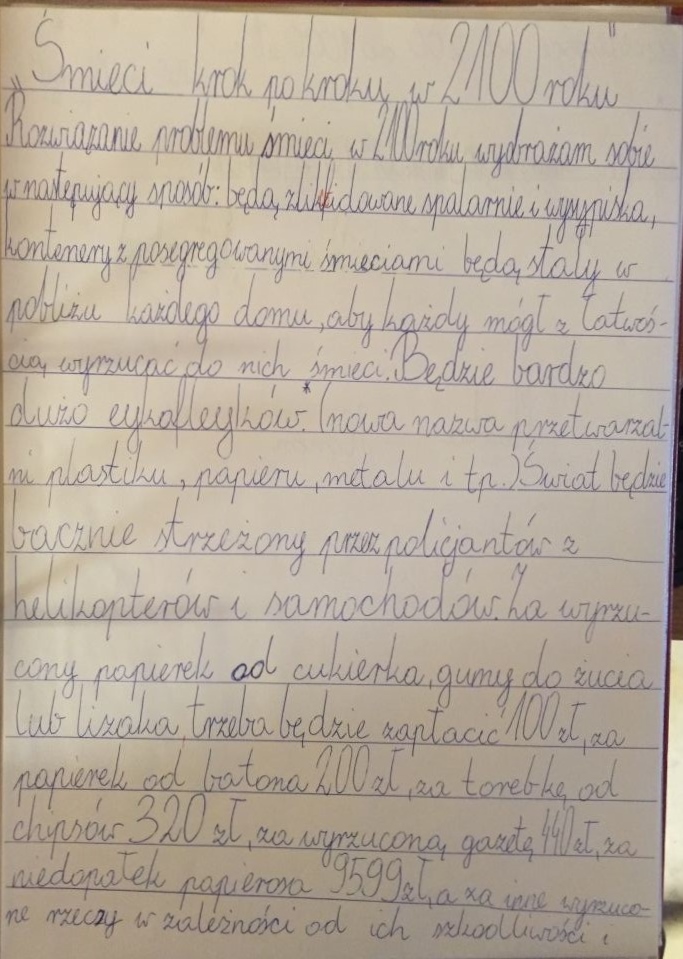 „Śmieci krok po kroku w 2100 roku"
Rozwiązanie problemu śmieci w 2100 roku wyobrażam sobie
w następujący sposób: będą zlikwidowane spalarnie i wysypiska,
kontenery z posegregowanymi śmieciami będą stały w
pobliżu każdego domu, aby każdy mógł z łatwoś-
cią wyrzucać do nich śmieci. Będzie bardzo
dużo eykofleyków.* (nowa nazwa przetwarzal-
ni plastiku, papieru, metalu i tp.) Świat będzie
bacznie strzeżony przez policjantów z
helikopterów i samochodów. Za wyrzu-
cony papierek od cukierka, gumy do żucia
lub lizaka, trzeba będzie zapłacić 100 zł, za
papierek od batona 200 zł, za torebkę od
chipsów 320 zł, za wyrzuconą gazetę 440 zł, za
niedopałek papierosa 9599 zł, a za inne wyrzuco-
ne rzeczy w zależności od ich szkodliwości i